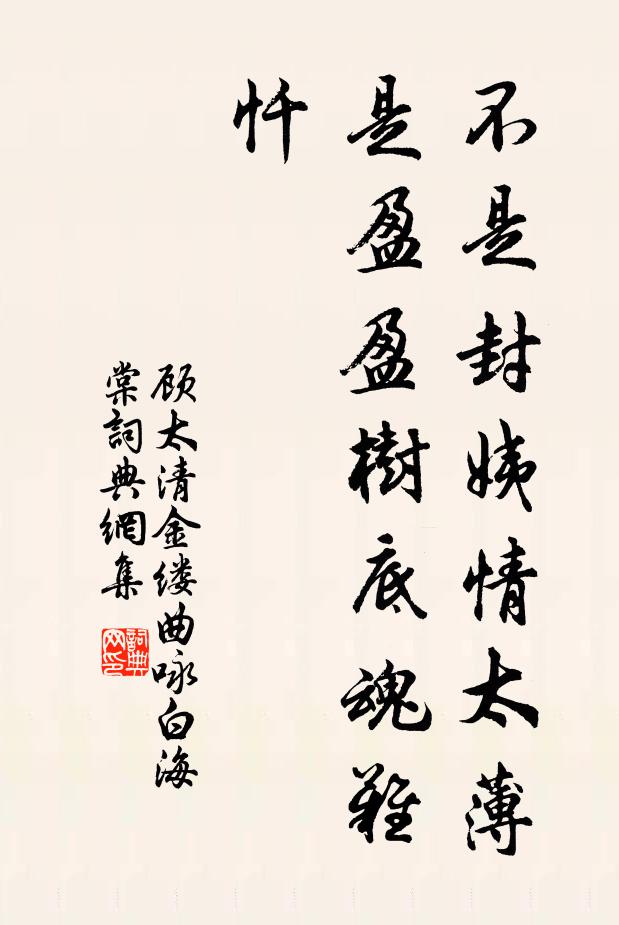 不是封姨情太薄
是盈盈樹底魂難
忏
顾太清金缕曲咏白海
棠詞典網集
詞典
网印